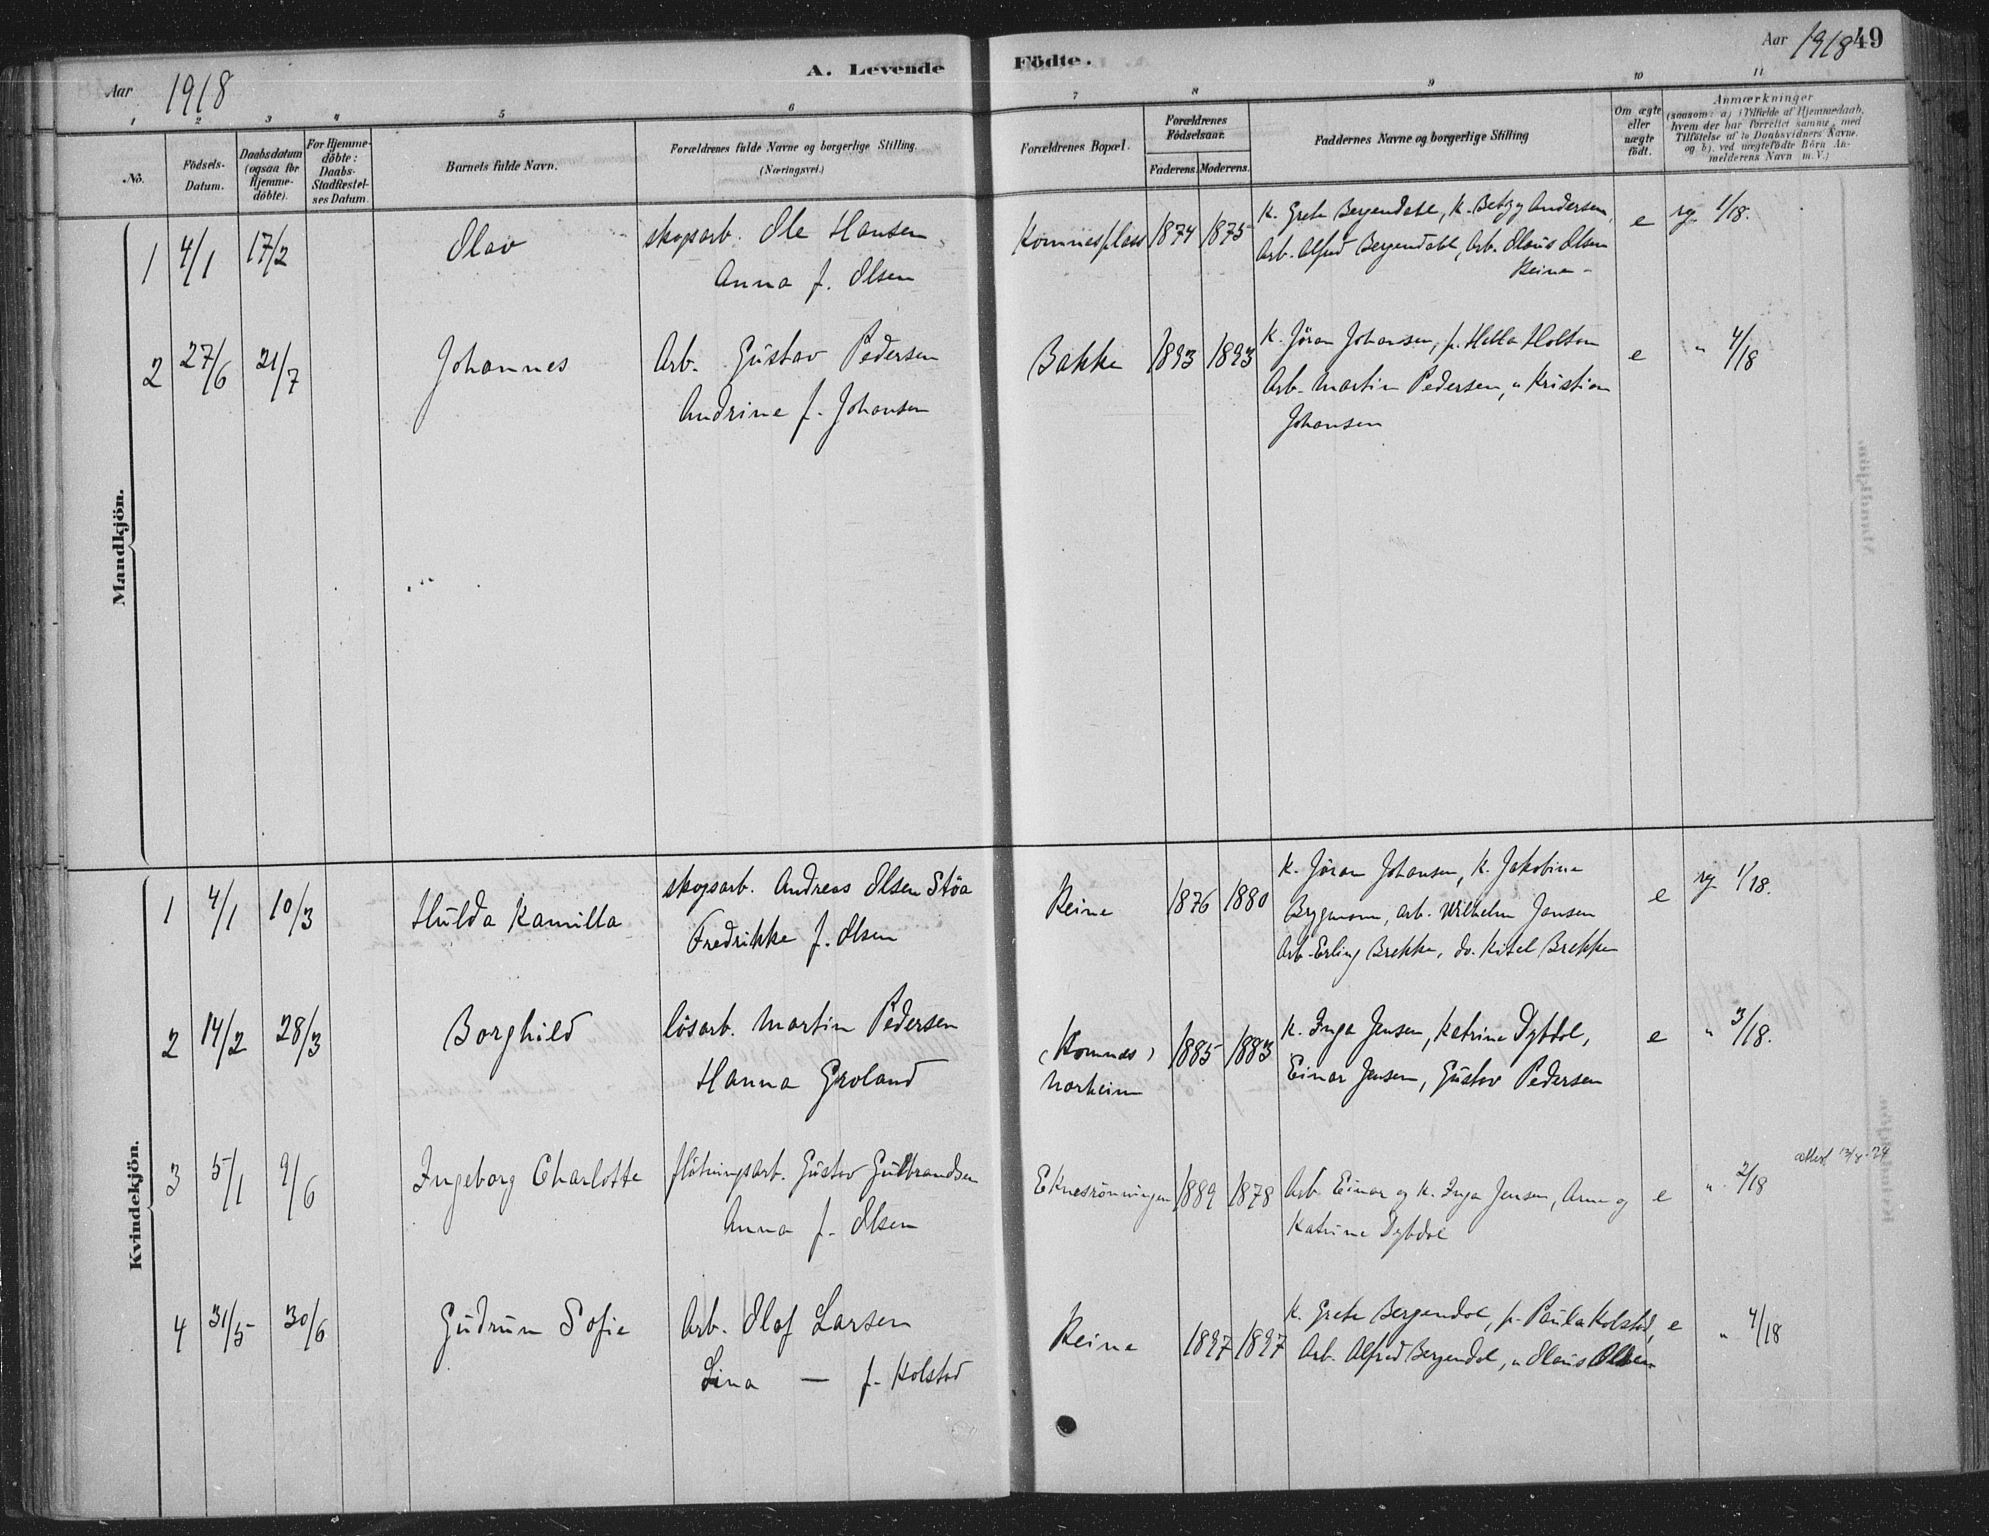 Aar 1918
A. Levende Födte.
Aar 1918 49
1 2 3 4 5 6 7 8 9 10 11
No.
Födsels-
Datum.
Daabsdatum
(ogsaa for
Hjemme-
döbte).
For Hjemme-
döbte:
Daabs-
Stadfæstel-
ses Datum.
Barnets fulde Navn.
Forældrenes fulde Navne og borgerlige Stilling.
(Næringsvei.)
Forældrenes Bopæl.
Forældrenes
Födselsaar.
Faderens. Moderens.
Faddernes Navne og borgerlige Stilling
Om ægte
eller
uægte
födt.
Anmærkninger
(saasom: a) i Tilfælde af Hjemmedaab,
hvem der har forrettet samme, med
Tilföielse af to Daabsvidners Navne.
og b) ved uægtefödte Börn An-
melderens Navn m.V.)
Mandkjön.
1 4/1 17/2 Olav skogsarb. Ole Hansen
Anna f. Olsen
Komnesplass 1874 1875
K. Grete Bergendahl, K. Betzy Andersen,
Arb. Alfred Bergendahl, Arb. Olaus Olsen
Reina -
e rg. 1/18.
2 27/6 21/7 Johannes Arb. Gustav Pedersen
Andrine f. Johansen
Bakke 1893 1893
K. Jöran Johansen, p. Hella Holtan
Arb. Martin Pedersen, " Kristian
Johansen
e " 4/18
Kvindekjön.
1 4/1 10/3 Hulda Kamilla skogsarb. Andreas Olsen Stöa
Fredrikke f. Olsen
Reine 1876 1880
K. Jöran Johansen, K. Jakobine
Brygmann, arb. Wilhelm Jansen
Arb. Erling Brekke, do. Kitel Brekke
e rg. 1/18.
2 14/2 28/3 Borghild lösarb. Martin Pedersen
Hanna Groland
(Komnes)
Norheim
1885 1883
K. Inga Jensen, Katrine Dybdal,
Einar Jensen, Gustav Pedersen
e " 3/18.
3 5/1 9/6 Ingeborg Charlotte flötningsarb. Gustav Gulbrandsen
Anna f. Olsen
Eknesrönningen 1889 1878
Arb. Einar og K. Inga Jensen, Anna og
Katrine Dybdal
e " 2/18
attest 13/8-24
4 31/5 30/6 Gudrun Sofie Arb. Olaf Larsen
Lina — f. Kolstad
Reina 1897 1897
K. Grete Bergendal, p. Paula Kolstad,
Arb. Alfred Bergendal, " Olaus Olsen
e " 4/18